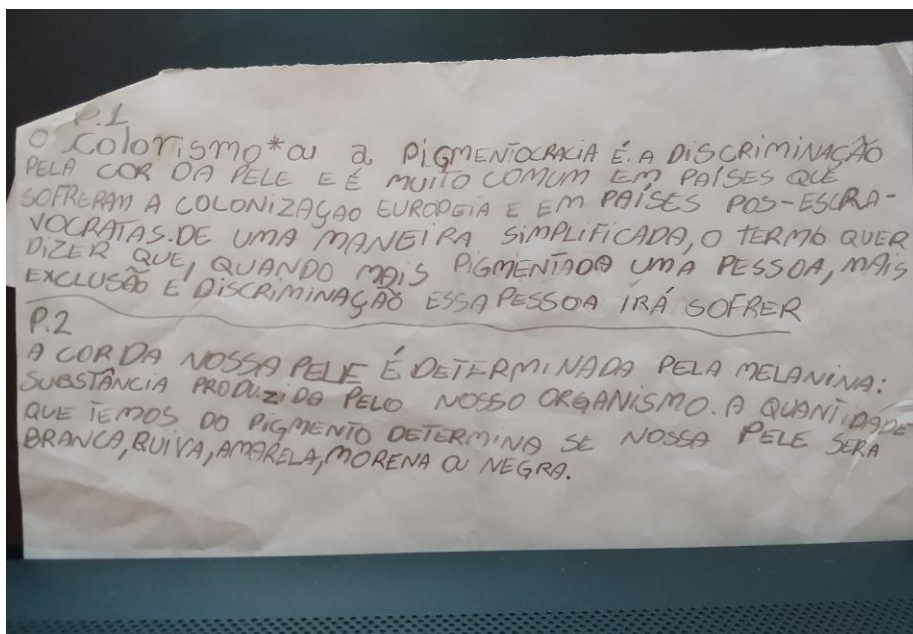 P.1
O Colorismo* ou a PIGMENTOCRACIA É A DISCRIMINAÇÃO
PELA COR DA PELE E É MUITO COMUM EM PAÍSES QUE
SOFRERAM A COLONIZAÇAO EUROPEIA E EM PAÍSES POS-ESCRA-
VOCRATAS. DE UMA MANEIRA SIMPLIFICADA, O TERMO QUER
DIZER QUE, QUANDO MAIS PIGMENTADA UMA PESSOA, MAIS
EXCLUSÃO E DISCRIMINAÇÃO ESSA PESSOA IRÁ SOFRER
P.2
A COR DA NOSSA PELE É DETERMINADA PELA MELANINA:
SUBSTÂNCIA PRODUZIDA PELO NOSSO ORGANISMO. A QUANTIDADE
QUE TEMOS DO PIGMENTO DETERMINA SE NOSSA PELE SERA
BRANCA, RUIVA, AMARELA, MORENA OU NEGRA.